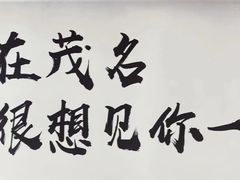 在茂名
很想见你一